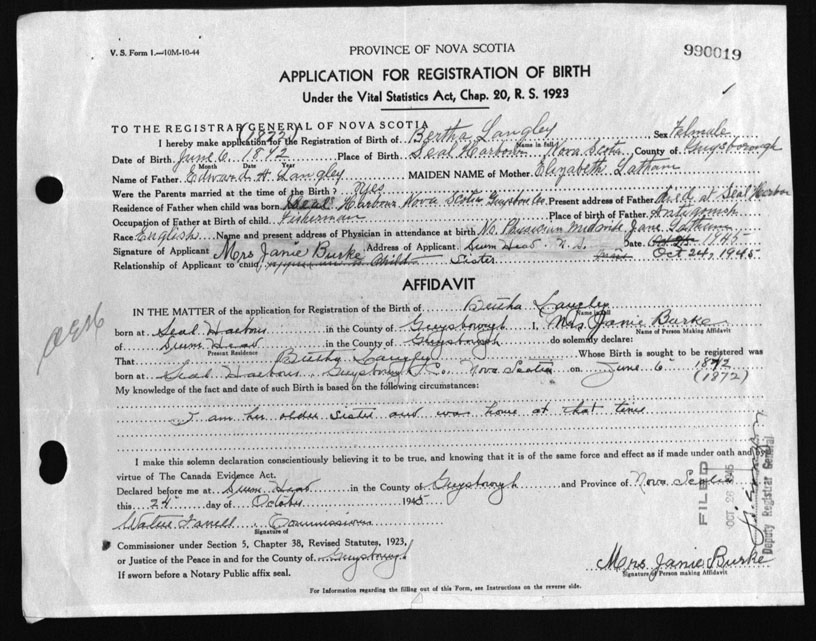 V. S. Form 1.—10M-10-44
PROVINCE OF NOVA SCOTIA
990019
APPLICATION FOR REGISTRATION OF BIRTH
Under the Vital Statistics Act, Chap. 20, R. S. 1923
TO THE REGISTRAR GENERAL OF NOVA SCOTIA
(1872)
I hereby make application for the Registration of Birth of Bertha Langley Sex Female
Name in full
Date of Birth June 6 1842 Place of Birth Seal Harbour Nova Scotia County of Guysborough
Month Date Year
Name of Father Edward A. Langley MAIDEN NAME of Mother Elizabeth Latham
Were the Parents married at the time of the Birth? Yes
Residence of Father when child was born Seal Harbour Nova Scotia Guysboro Co. Present address of Father died at Seal Harbor
Occupation of Father at Birth of child Fisherman Place of birth of Father Antigonish
Race English Name and present address of Physician in attendance at birth No Physician Midwife Jane
Signature of Applicant Mrs Janie Burke Address of Applicant Drum Head N. S. Date Oct 24, 1945
Relationship of Applicant to child Sister
AFFIDAVIT
IN THE MATTER of the application for Registration of the Birth of Bertha Langley
Name in full
born at Seal Harbour in the County of Guysborough I, Mrs Janie Burke
Name of Person Making Affidavit
of Drum Head in the County of Guysborough do solemnly declare:
Present Residence
That Bertha Langley Whose Birth is sought to be registered was
born at Seal Harbour Guysborough Co. Nova Scotia on June 6 1842
(1872)
My knowledge of the fact and date of such Birth is based on the following circumstances:
I am her older sister and was home at that time
I make this solemn declaration conscientiously believing it to be true, and knowing that it is of the same force and effect as if made under oath and by
virtue of The Canada Evidence Act.
Declared before me at Drum Head in the County of Guysborough and Province of Nova Scotia
this 24 day of October 1945
Commissioner
Signature of
Commissioner under Section 5, Chapter 38, Revised Statutes, 1923,
or Justice of the Peace in and for the County of Guysborough
If sworn before a Notary Public affix seal.
Mrs Janie Burke
Signature of Person making Affidavit
For Information regarding the filling out of this Form, see Instructions on the reverse side.
FILED
OCT 26 1945
Deputy Registrar General